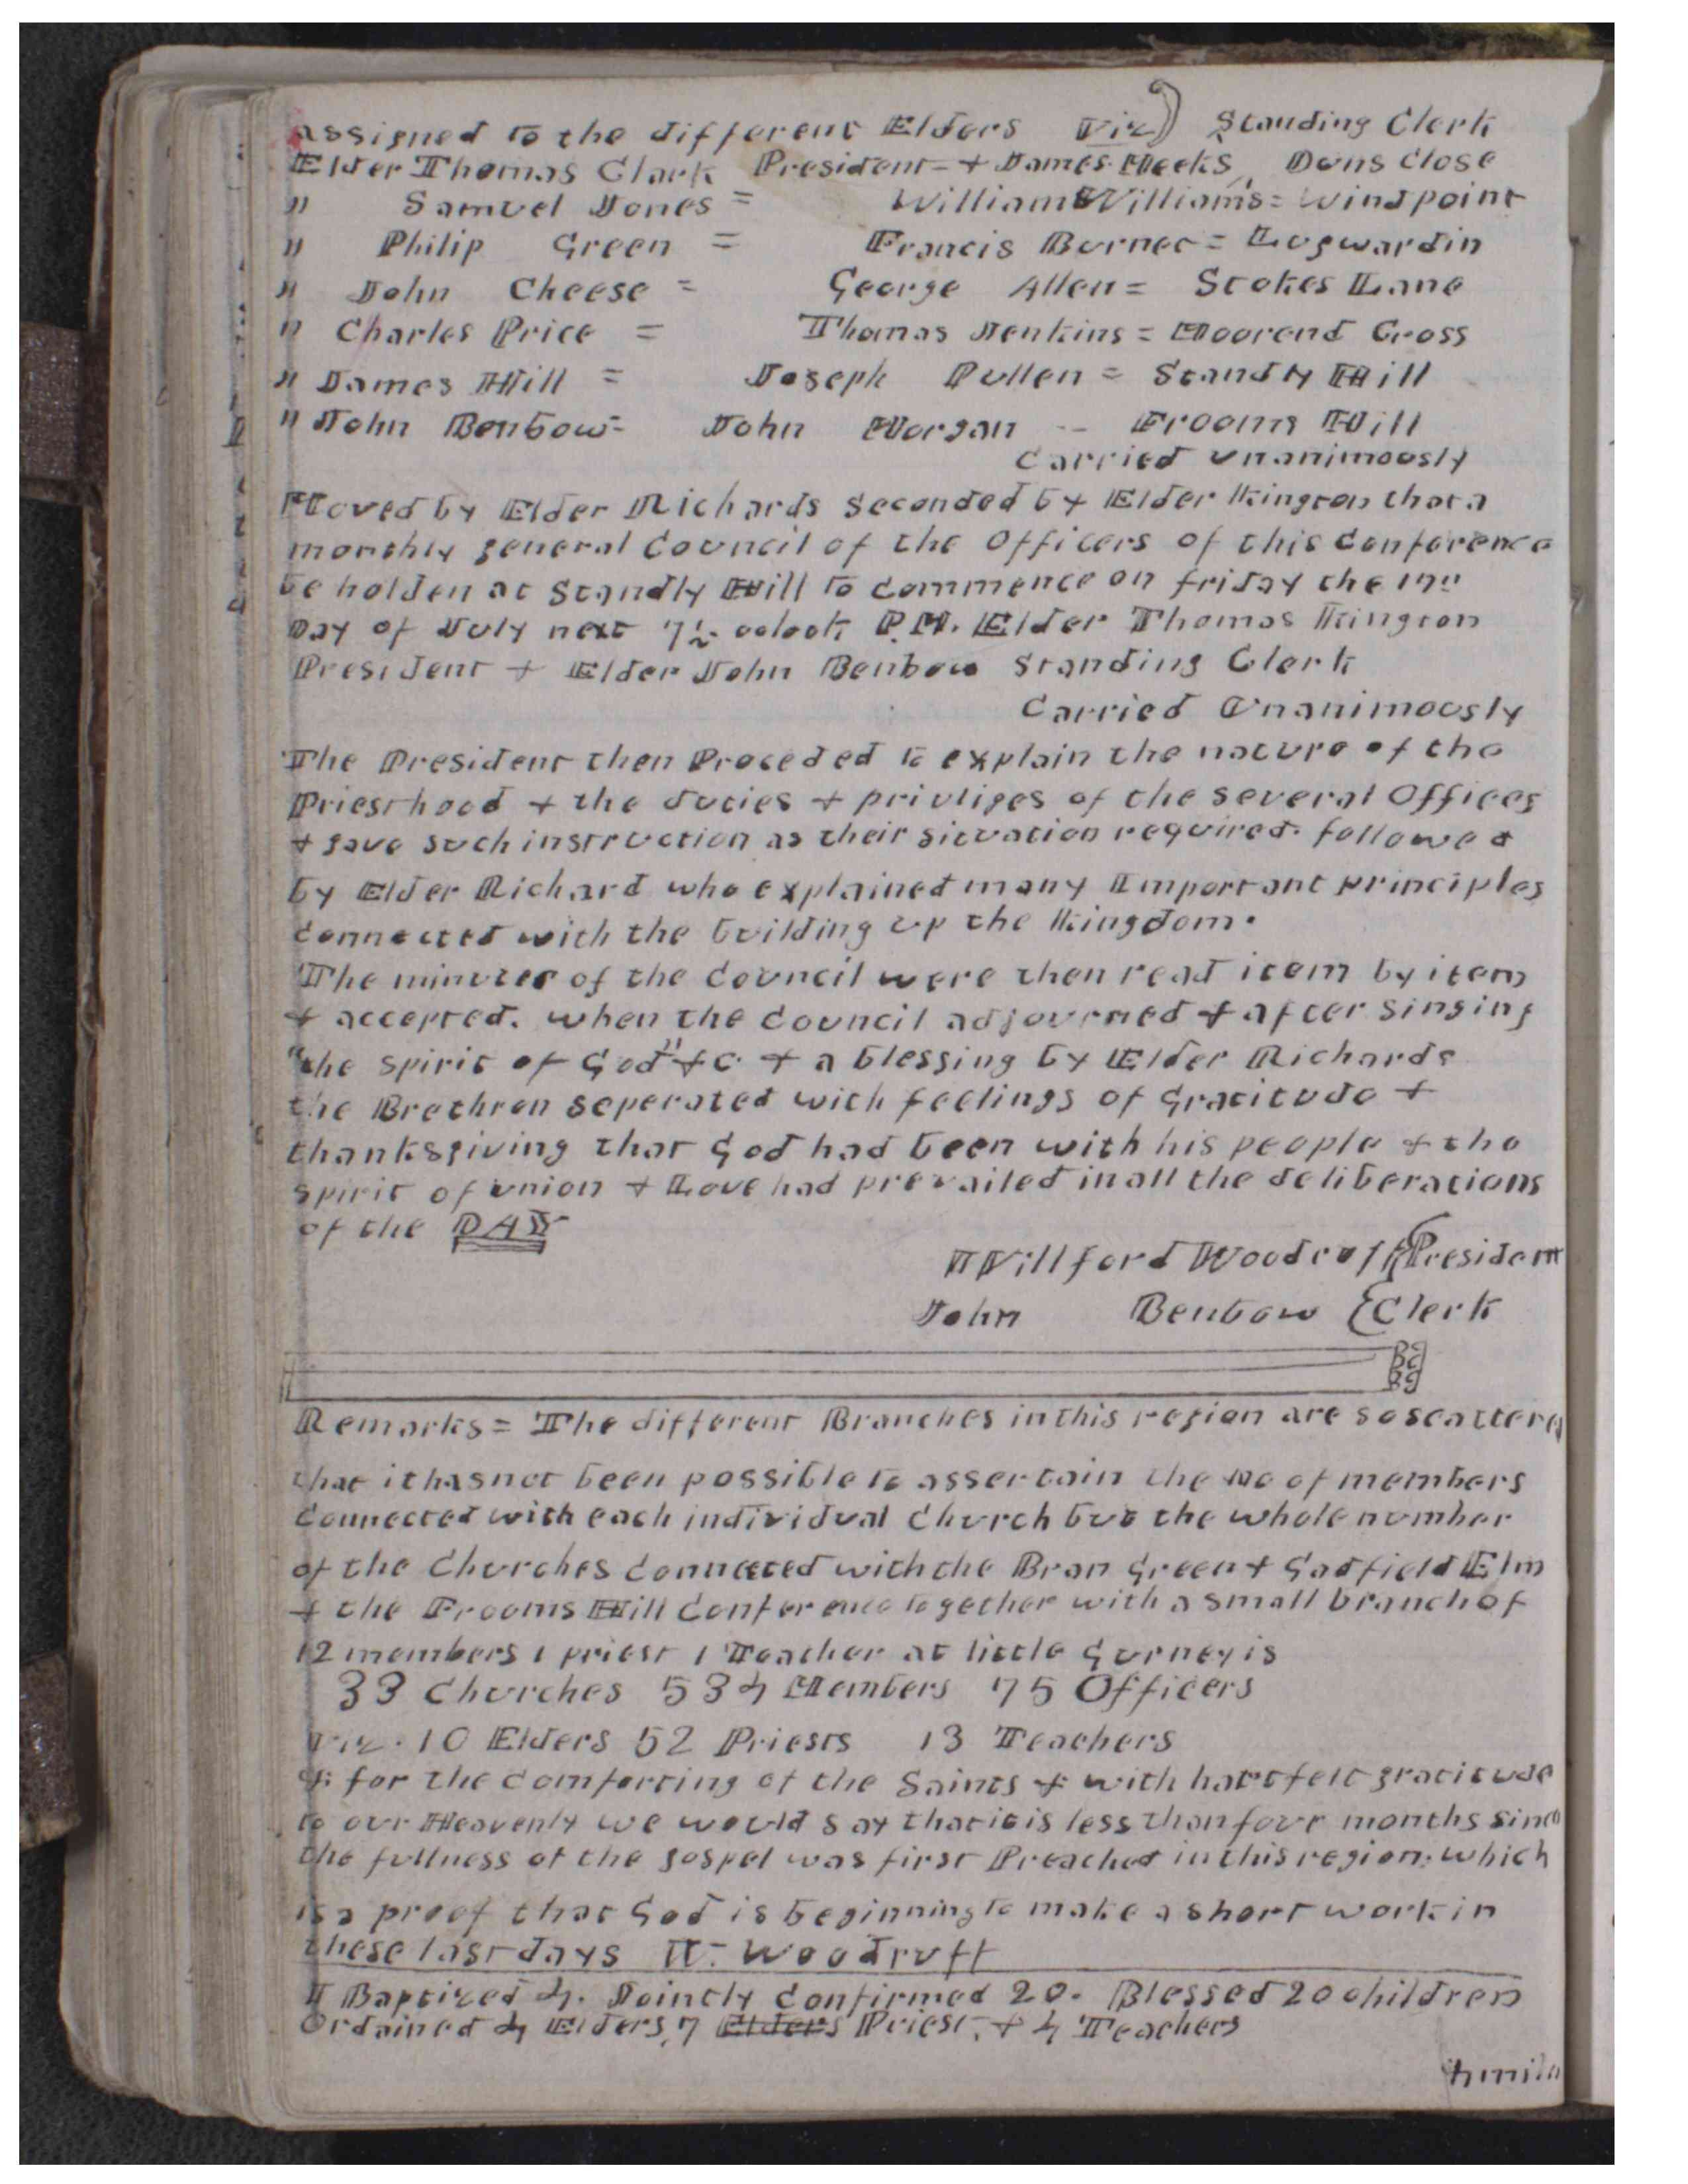 assigned to the different Elders viz) Standing Clerk
Elder Thomas Clark President - + James Meeks, Dens Close
" Samuel Jones = William Williams = Wind point
" Philip Green = Francis Burnec = Lugwardin
" John Cheese = George Allen = Stokes Lane
" Charles Price = Thomas Jenkins = Moorend Cross
" James Hill = Joseph Pullen = Standly Hill
" John Benbow - John Morgan -- Frooms Hill
Carried unanimously
Moved by Elder Richards Seconded by Elder Kington that a
monthly general Council of the Officers of this conference
be holden at Standly Hill to commence on friday the 17"
Day of July next 7½ oclock P.M. Elder Thomas Kington
President + Elder John Benbow Standing Clerk
Carried Unanimously
The President then Proceded to explain the nature of the
Priesthood + the duties + privliges of the several Offices
+ gave such instruction as their situation required. followed
by Elder Richard who explained many Important principles
connected with the building up the Kingdom.
The minutes of the Council were then read item by item
+ accepted. when the council adjourned + after singing
"the spirit of God" +c. + a blessing by Elder Richards
the Brethren seperated with feelings of Gratitude +
thanksgiving that God had been with his people + the
spirit of union + Love had prevailed in all the deliberations
of the DAY
Willford Woodruff {President
John Benbow {Clerk
Remarks = The different Branches in this region are so scattered
that it has not been possible to assertain the No of members
Connected with each individual Church but the whole number
of the Churches Connected with the Bran Green + Gadfield Elm
+ the Frooms Hill Conference together with a small branch of
12 members 1 priest 1 Teacher at little Gurney is
33 Churches 534 Members 75 Officers
viz. 10 Elders 52 Priests 13 Teachers
+ for the comforting of the Saints + with hartfelt gratitude
to our Heavenly we would say that it is less than four months since
the fullness of the gospel was first Preached in this region. which
is a proof that God is beginning to make a short work in
these last days W. Woodruff
I Baptized 4. Jointly Confirmed 20. Blessed 20 children
Ordained 4 Elders, 7 Elders Priest, + 4 Teachers